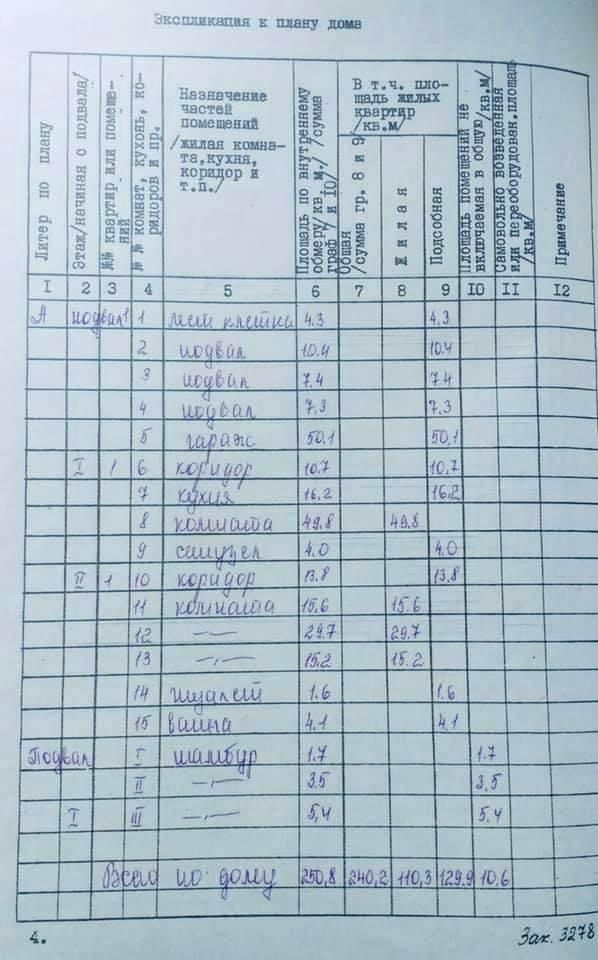 Экспликация к плану дома
Литер по плану
Этаж/начиная с подвала/
№№ квартир или помещений
№№ комнат, кухонь, коридоров и пр.
Назначение
частей
помещений
/жилая комна-
та,кухня,
коридор и
т.п./
Площадь по внутреннему
обмеру/кв. м./ /сумма
граф и 10/
В т.ч. пло-
щадь жилых
квартир
/кв.м/
Общая
/сумма гр. 8 и 9/
Жилая
Подсобная
Площадь помещений не
включаемая в общую/кв.м/
Самовольно возведенная
или переоборудован.площадь
/кв.м/
Примечание
I 2 3 4 5 6 7 8 9 10 II 12
А подвал 1 1 лест клетка 4.3 4,3
2 подвал 10.4 10.4
3 подвал 7.4 7.4
4 подвал 7,3 7.3
5 гараж 50,1 50,1
I 1 6 коридор 10.7 10,7
7 кухня 16,2 16,2
8 комната 49,8 49,8
9 санузел 4.0 4.0
II 1 10 коридор 13.8 13,8
11 комната 15,6 15.6
12 —〃— 29.7 29.7
13 —〃— 15,2 15.2
14 туалет 1.6 1.6
15 ванна 4,1 4,1
Подвал I тамбур 1.7 1.7
II —〃— 3.5 3,5
I III —〃— 5,4 5.4
Всего по дому 250,8 240,2 110,3 129.9 10.6
4.
Зак. 3278